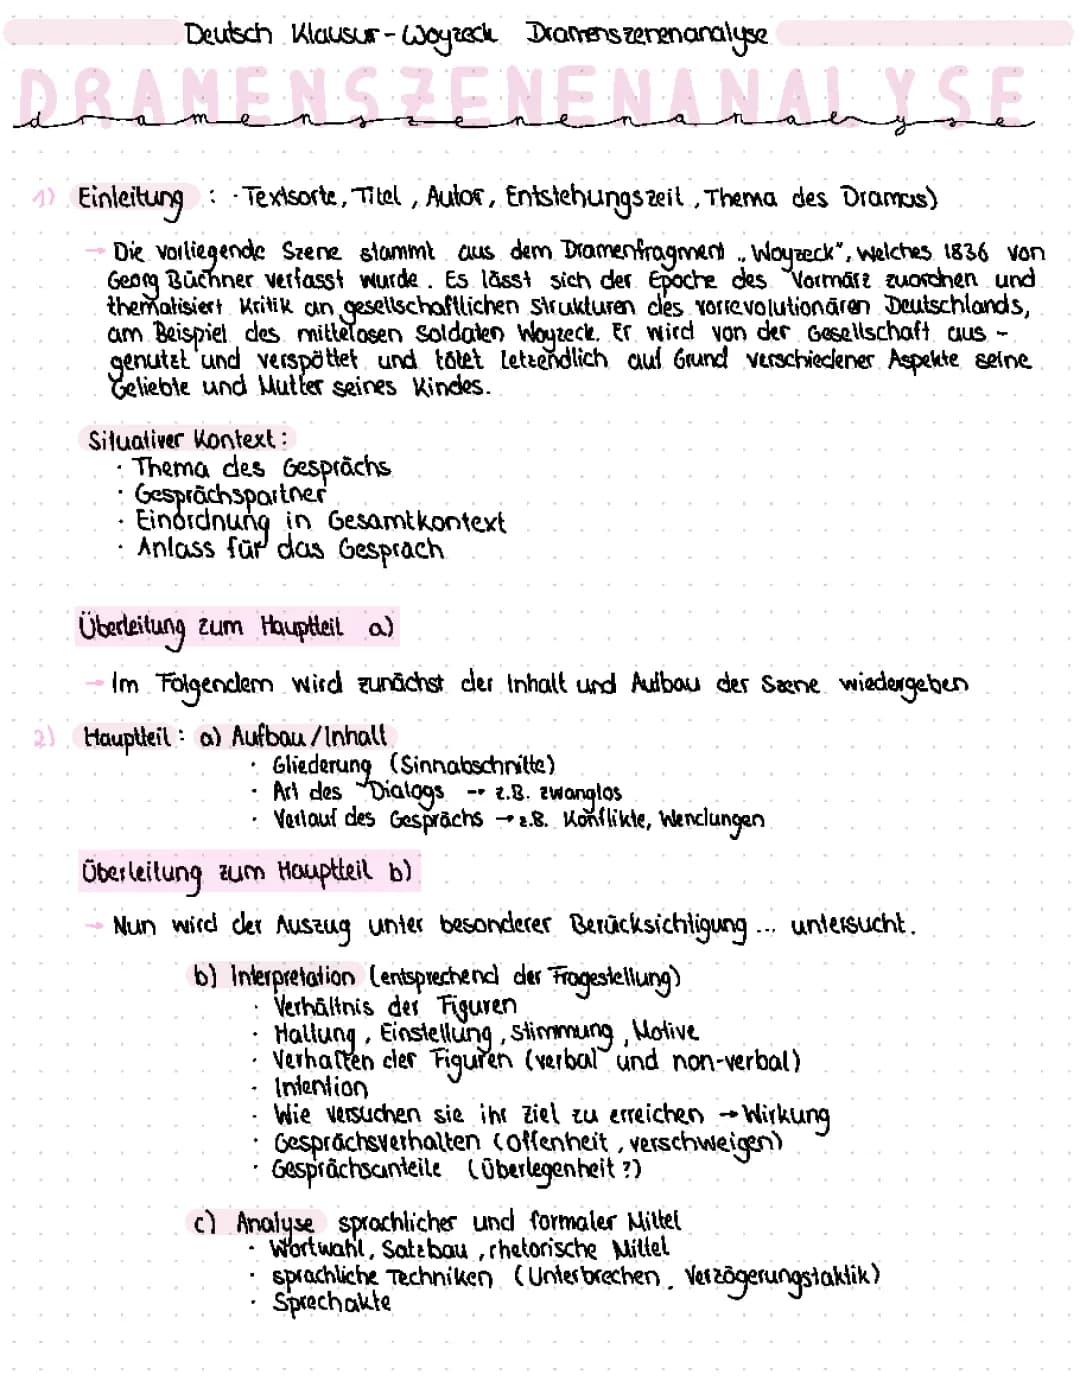 Deutsch Klausur - Woyzeck Dramenszenenanalyse
DRAMENSZENENANALYSE
dramenszenenanalyse
1) Einleitung : · Textsorte, Titel, Autor, Entstehungszeit, Thema des Dramas)
→ Die vorliegende Szene stammt aus dem Dramenfragment „Woyzeck", welches 1836 von
Georg Büchner verfasst wurde. Es lässt sich der Epoche des Vormärz zuordnen und
thematisiert Kritik an gesellschaftlichen Strukturen des vorrevolutionären Deutschlands,
am Beispiel des mittellosen Soldaten Woyzeck. Er wird von der Gesellschaft aus-
genutzt und verspottet und tötet letzendlich auf Grund verschiedener Aspekte seine
Geliebte und Mutter seines Kindes.
Situativer Kontext:
· Thema des Gesprächs
· Gesprächspartner
· Einordnung in Gesamtkontext
· Anlass für das Gespräch
Überleitung zum Hauptteil a)
→ Im Folgendem wird zunächst der Inhalt und Aufbau der Szene wiedergeben
2) Hauptteil: a) Aufbau/Inhalt
· Gliederung (Sinnabschnitte)
· Art des Dialogs → z.B. zwanglos
· Verlauf des Gesprächs → z.B. Konflikte, Wendungen
Überleitung zum Hauptteil b)
→ Nun wird der Auszug unter besonderer Berücksichtigung ... untersucht.
b) Interpretation (entsprechend der Fragestellung)
· Verhältnis der Figuren
· Haltung, Einstellung, Stimmung, Motive
· Verhalten der Figuren (verbal und non-verbal)
· Intention
· Wie versuchen sie ihr Ziel zu erreichen → Wirkung
· Gesprächsverhalten (offenheit, verschweigen)
· Gesprächsanteile (Überlegenheit?)
c) Analyse sprachlicher und formaler Mittel
· Wortwahl, Satzbau, rhetorische Mittel
· sprachliche Techniken (Unterbrechen, Verzögerungstaktik)
· Sprechakte